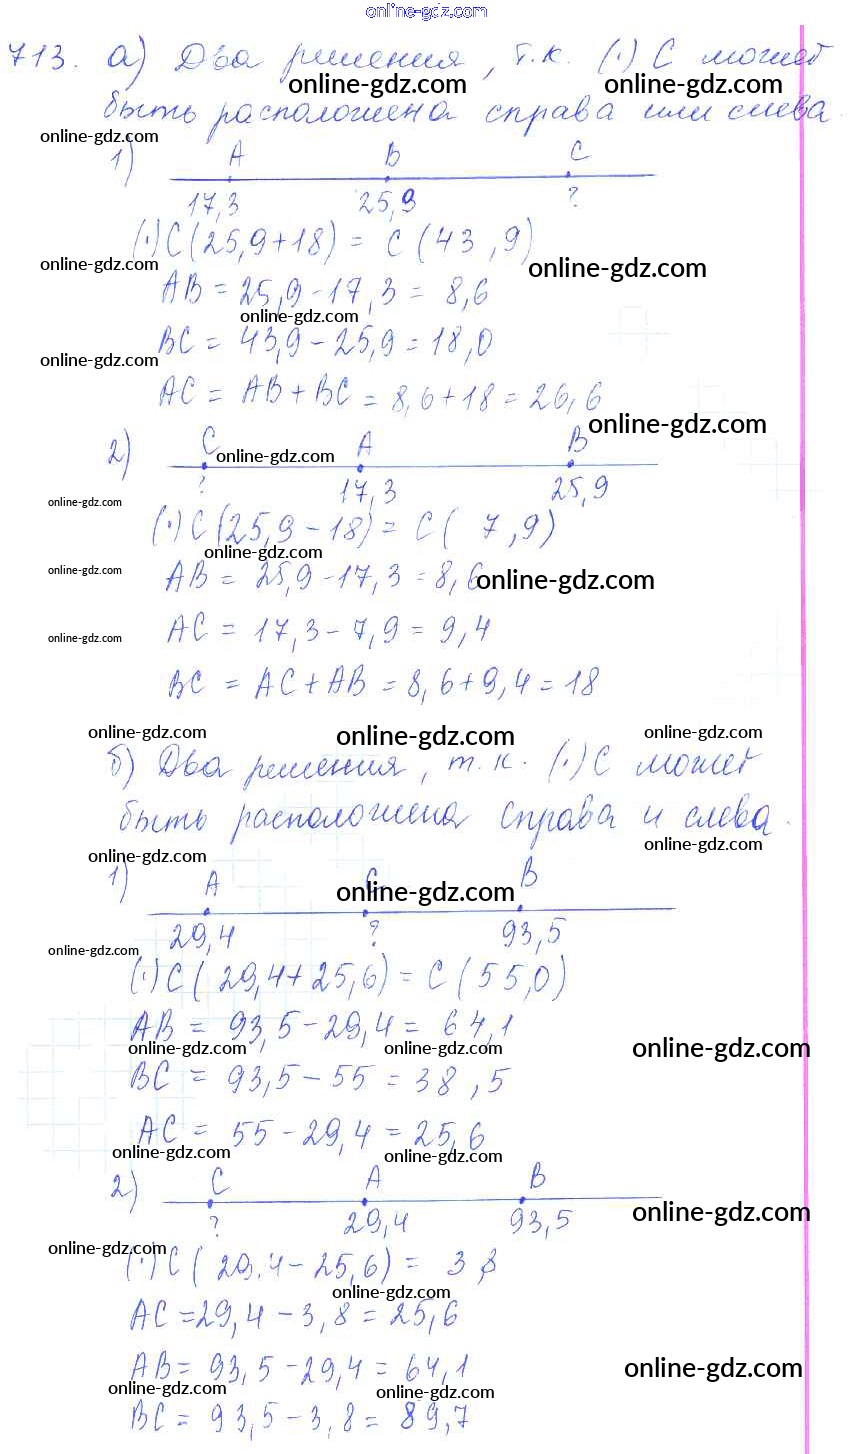 online-gdz.com
713. а) Два решения, т.к. (·) С может
online-gdz.com online-gdz.com
быть расположена справа или слева.
online-gdz.com
1) A B C
17,3 25,9 ?
(·) C (25,9+18) = C (43,9)
online-gdz.com online-gdz.com
AB = 25,9 - 17,3 = 8,6
online-gdz.com
BC = 43,9 - 25,9 = 18,0
online-gdz.com
AC = AB + BC = 8,6 + 18 = 26,6
online-gdz.com
2) C A B
online-gdz.com
? 17,3 25,9
online-gdz.com
(·) C (25,9 - 18) = C ( 7,9)
online-gdz.com
AB = 25,9 - 17,3 = 8,6
online-gdz.com online-gdz.com
AC = 17,3 - 7,9 = 9,4
online-gdz.com
BC = AC + AB = 8,6 + 9,4 = 18
online-gdz.com online-gdz.com online-gdz.com
б) Два решения, т.к. (·) С может
быть расположена справа и слева.
online-gdz.com
online-gdz.com
1) A C B
online-gdz.com
29,4 ? 93,5
online-gdz.com
(·) C ( 29,4 + 25,6) = C (55,0)
AB = 93,5 - 29,4 = 64,1
online-gdz.com online-gdz.com online-gdz.com
BC = 93,5 - 55 = 38,5
AC = 55 - 29,4 = 25,6
online-gdz.com online-gdz.com
2) C A B
online-gdz.com
? 29,4 93,5
online-gdz.com
(·) C ( 29,4 - 25,6) = 3,8
online-gdz.com
AC = 29,4 - 3,8 = 25,6
AB = 93,5 - 29,4 = 64,1
online-gdz.com
online-gdz.com online-gdz.com
BC = 93,5 - 3,8 = 89,7